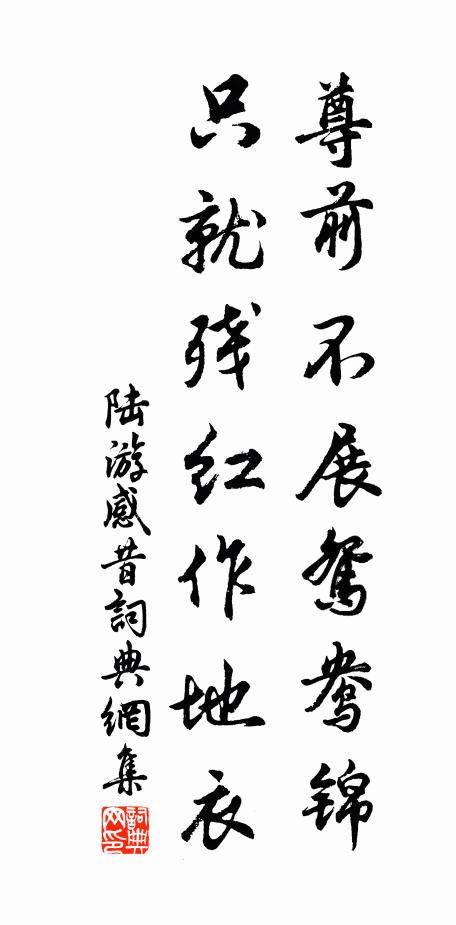 尊前不展鸳鸯锦
只就残红作地衣
陆游感昔詞典網集
詞典网印